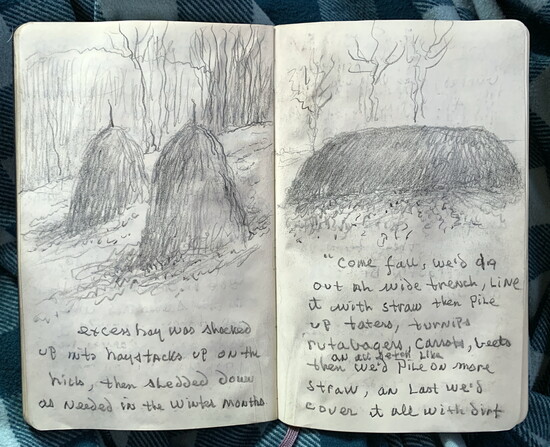 excess hay was shocked
up into haystacks up on the
hills, then sledded down
as needed in the winter months
"Come fall, we'd dig
out ah wide trench, line
it with straw then pile
up taters, turnips
rutabagers, carrots, beets
an all setch like
then we'd pile on more
straw, an last we'd
cover it all with dirt